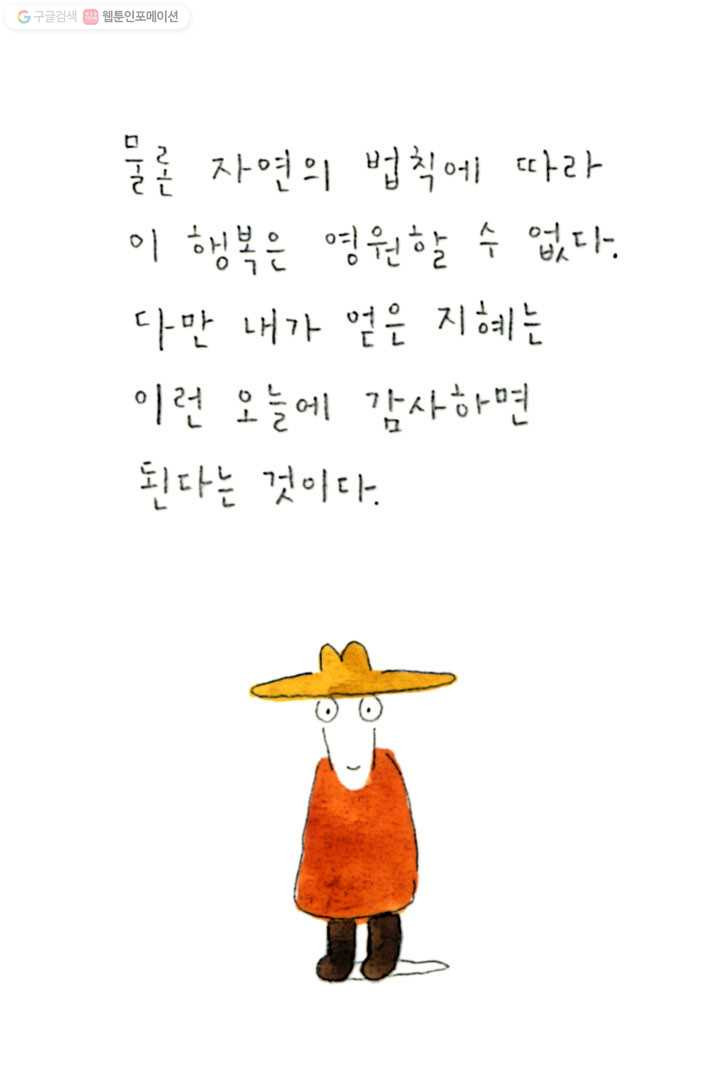 구글검색 웹툰인포메이션
물론 자연의 법칙에 따라
이 행복은 영원할 수 없다.
다만 내가 얻은 지혜는
이런 오늘에 감사하면
된다는 것이다.